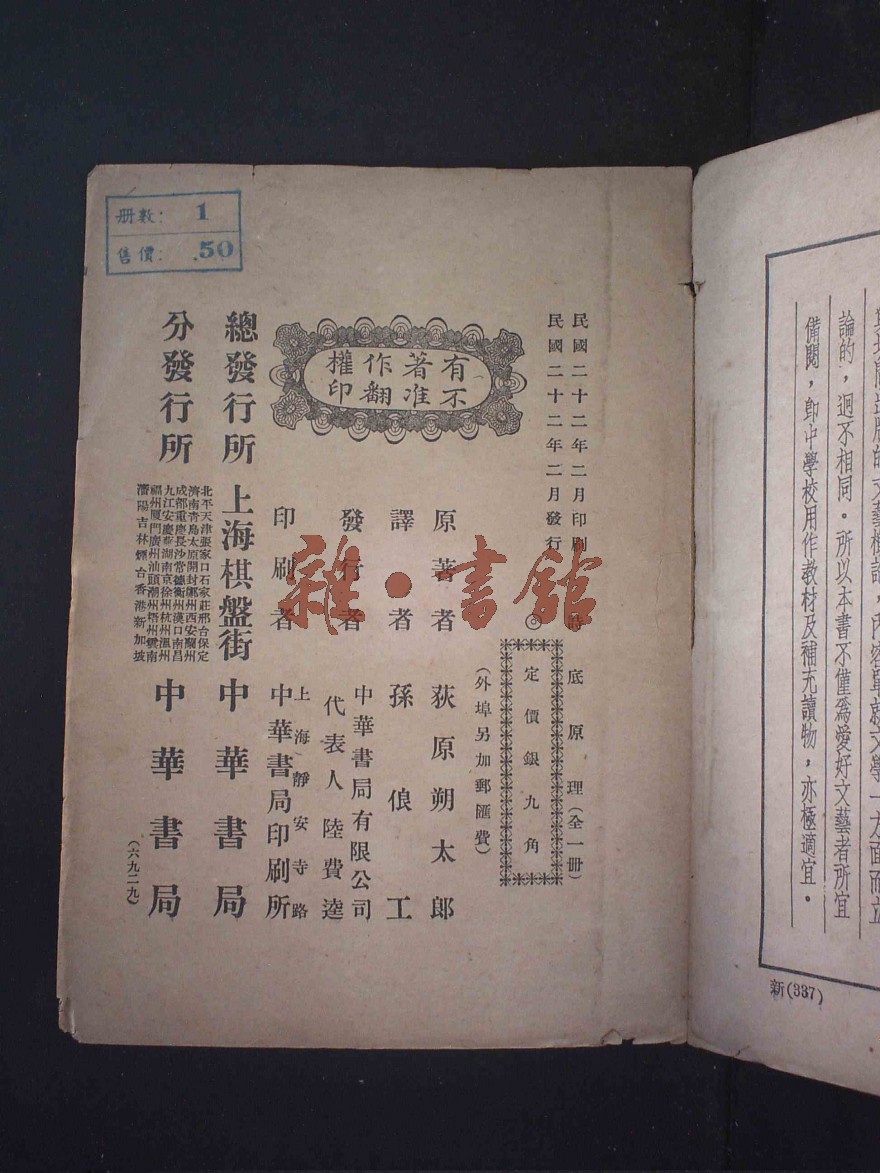 論的，迥不相同。所以本書不僅爲愛好文藝者所宜
備閱，卽中學校用作教材及補充讀物，亦極適宜。
新(337)
民國二十二年二月印刷
民國二十二年二月發行
詩底原理(全一冊)
◎
定價銀九角
(外埠另加郵匯費)
有著作權
不准翻印
原著者 荻原朔太郎
譯者 孫俍工
發行者 中華書局有限公司
代表人陸費逵
印刷者 上海靜安寺路
中華書局印刷所
總發行所 上海棋盤街 中華書局
分發行所
北平天津張家口石家莊邢台保定
濟南青島太原開封鄭州西安蘭州
成都重慶長沙常德衡州漢口南昌
九江安慶蕪湖南京徐州杭州溫州
福州厦門廣州汕頭潮州梧州雲南
瀋陽吉林煙台香港新加坡
中華書局
(六九二九)
册數: 1
售價: .50
雜·書館